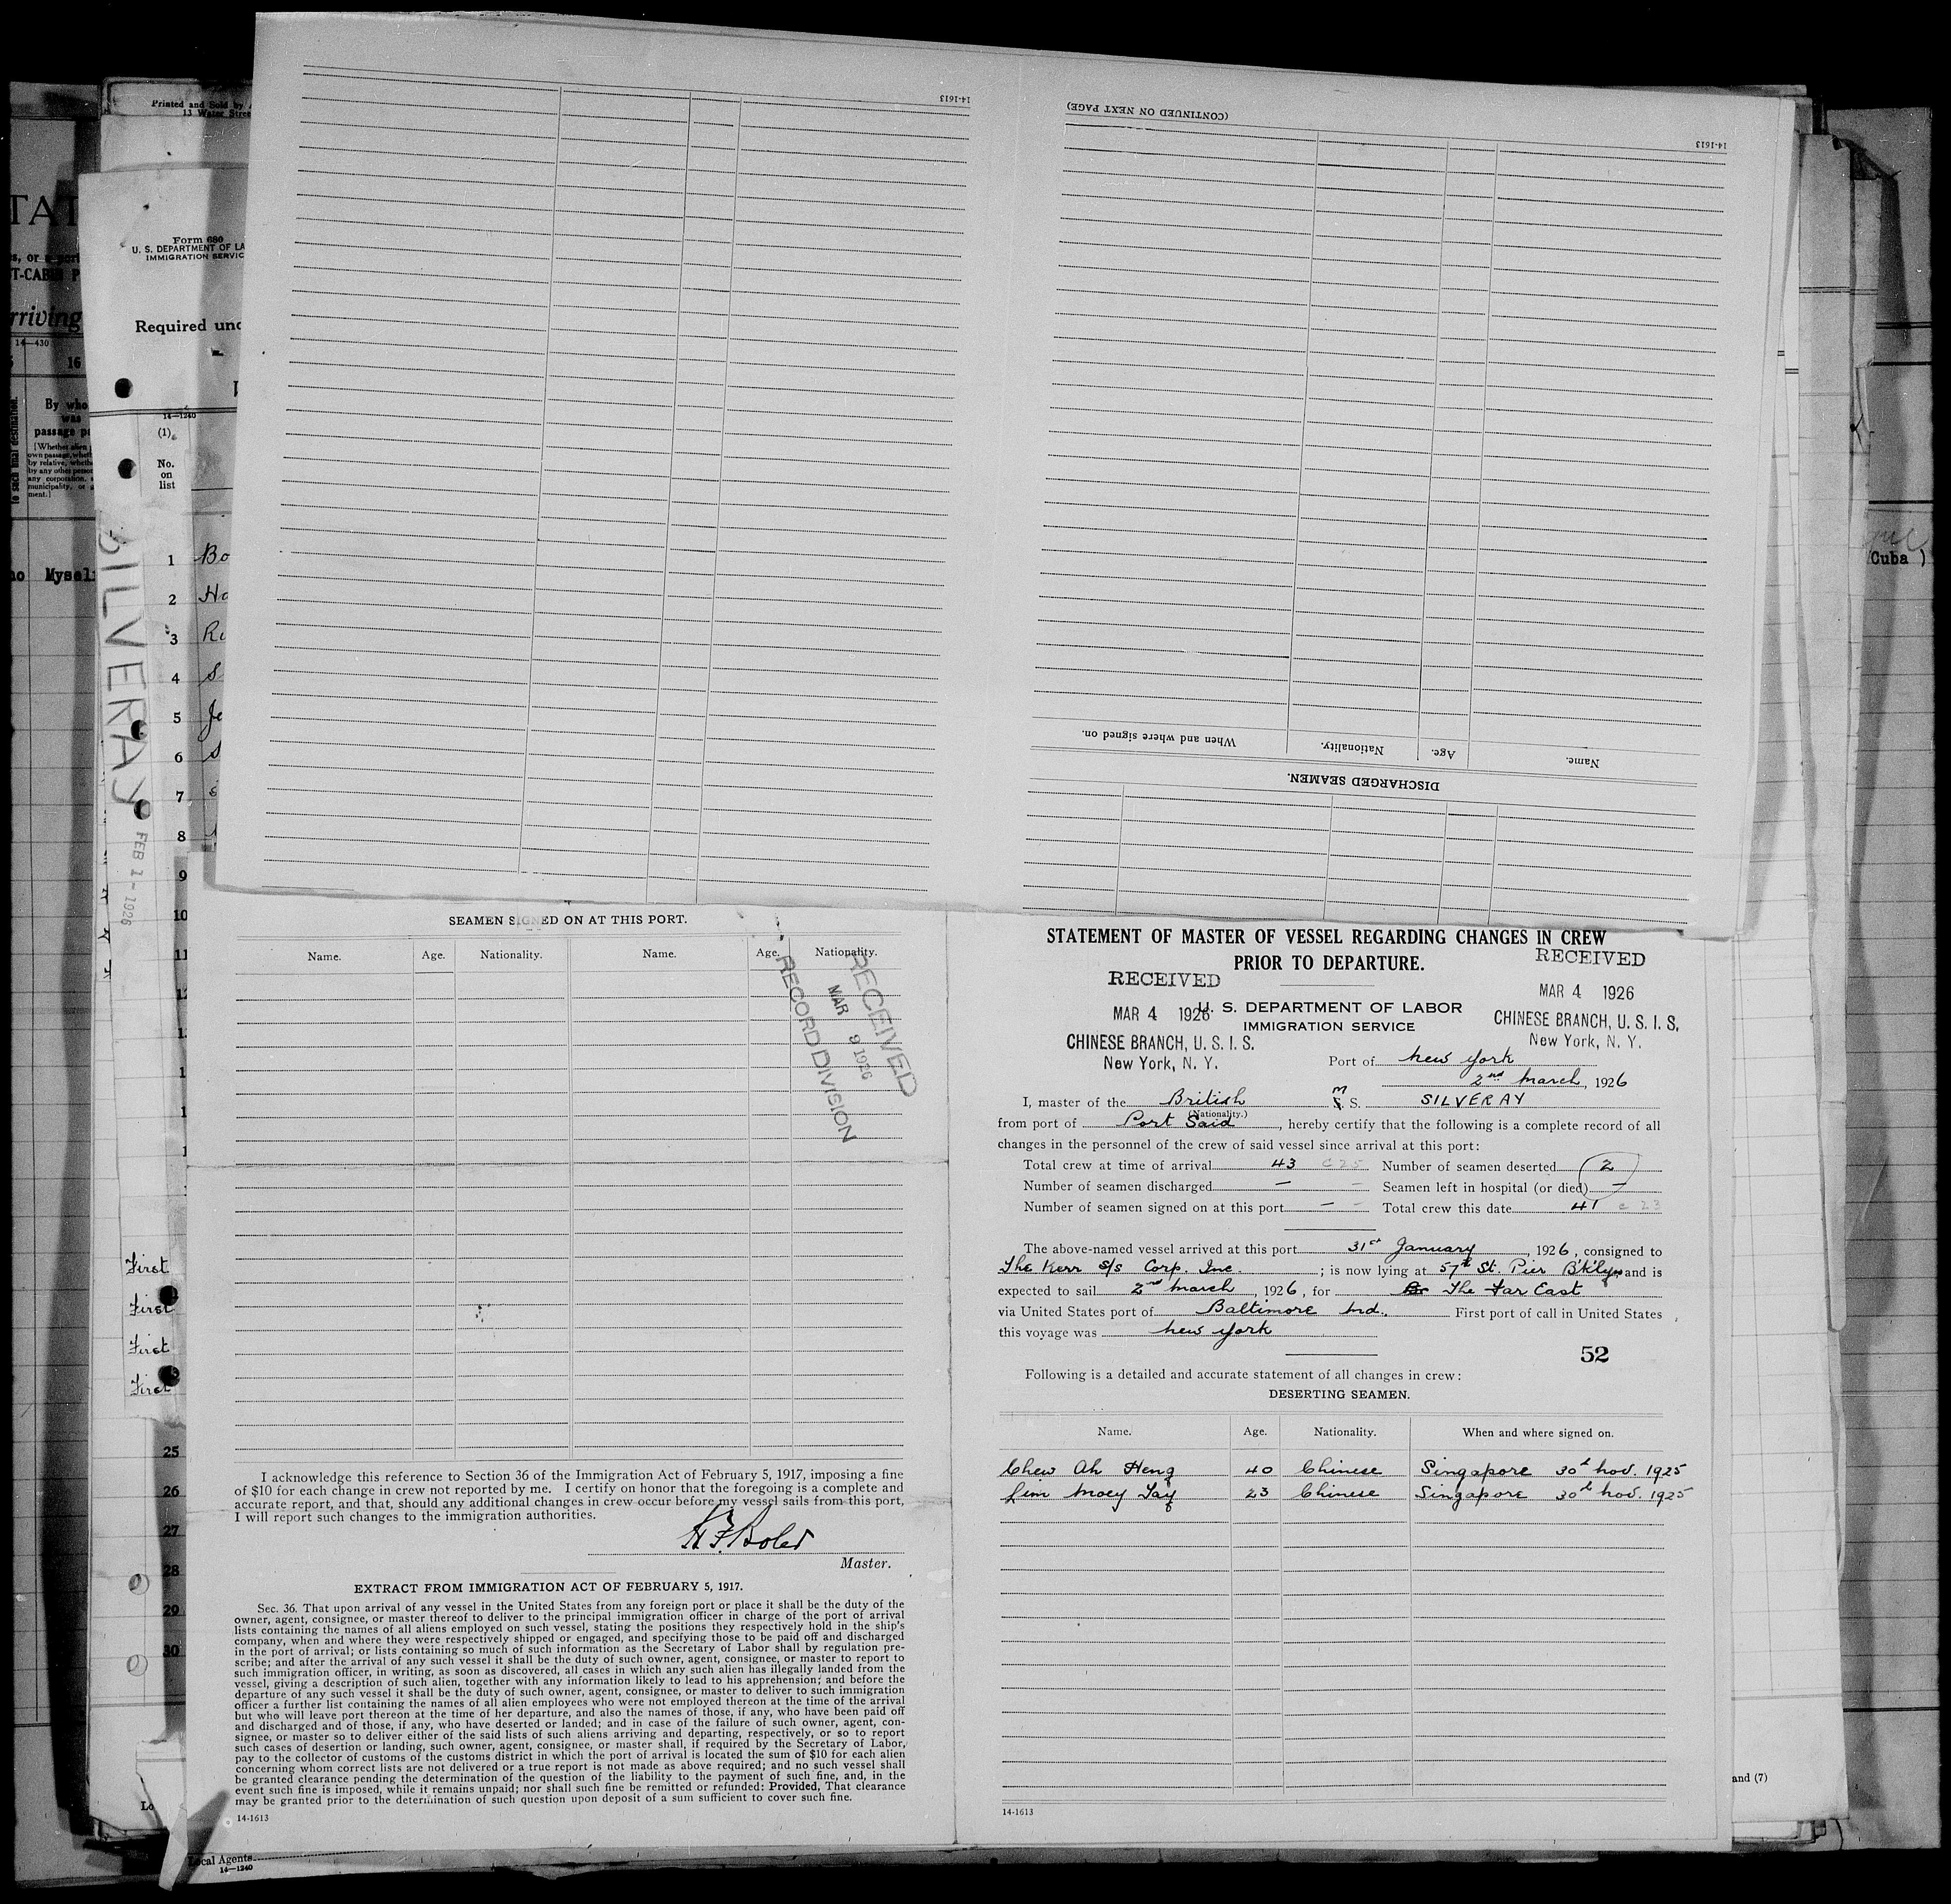 Printed and Sold by
13 Water Stree
TAT
s, or a peri
T-CABIN P
rriving
14—430
16
By who
was
passage p
to such final destination.
no Mysel
Form 680
U. S. DEPARTMENT OF LA
IMMIGRATION SERVIC
Required und
14—1240
(1)
No.
on
list
SILVERAY
FEB 1 - 1926
1 Bo
2 Ha
3 Ri
4 S
5 Je
6 S
7
8
9
10
11
First
First
First
First
25
26
27
28
29
30
Local Agents
14—1240
Cuba )
and (7)
14-1613
(CONTINUED ON NEXT PAGE)
14-1613
When and where signed on. Nationality. Age. Name.
DISCHARGED SEAMEN.
SEAMEN SIGNED ON AT THIS PORT.
Name. Age. Nationality. Name. Age. Nationality.
RECEIVED
MAR 9 1926
RECORD DIVISION
I acknowledge this reference to Section 36 of the Immigration Act of February 5, 1917, imposing a fine
of $10 for each change in crew not reported by me. I certify on honor that the foregoing is a complete and
accurate report, and that, should any additional changes in crew occur before my vessel sails from this port,
I will report such changes to the immigration authorities.
Master.
EXTRACT FROM IMMIGRATION ACT OF FEBRUARY 5, 1917.
Sec. 36. That upon arrival of any vessel in the United States from any foreign port or place it shall be the duty of the
owner, agent, consignee, or master thereof to deliver to the principal immigration officer in charge of the port of arrival
lists containing the names of all aliens employed on such vessel, stating the positions they respectively hold in the ship's
company, when and where they were respectively shipped or engaged, and specifying those to be paid off and discharged
in the port of arrival; or lists containing so much of such information as the Secretary of Labor shall by regulation pre-
scribe; and after the arrival of any such vessel it shall be the duty of such owner, agent, consignee, or master to report to
such immigration officer, in writing, as soon as discovered, all cases in which any such alien has illegally landed from the
vessel, giving a description of such alien, together with any information likely to lead to his apprehension; and before the
departure of any such vessel it shall be the duty of such owner, agent, consignee, or master to deliver to such immigration
officer a further list containing the names of all alien employees who were not employed thereon at the time of the arrival
but who will leave port thereon at the time of her departure, and also the names of those, if any, who have been paid off
and discharged and of those, if any, who have deserted or landed; and in case of the failure of such owner, agent, con-
signee, or master so to deliver either of the said lists of such aliens arriving and departing, respectively, or so to report
such cases of desertion or landing, such owner, agent, consignee, or master shall, if required by the Secretary of Labor,
pay to the collector of customs of the customs district in which the port of arrival is located the sum of $10 for each alien
concerning whom correct lists are not delivered or a true report is not made as above required; and no such vessel shall
be granted clearance pending the determination of the question of the liability to the payment of such fine, and, in the
event such fine is imposed, while it remains unpaid; nor shall such fine be remitted or refunded: Provided, That clearance
may be granted prior to the determination of such question upon deposit of a sum sufficient to cover such fine.
14-1613
STATEMENT OF MASTER OF VESSEL REGARDING CHANGES IN CREW
PRIOR TO DEPARTURE.
RECEIVED
MAR 4 1926
CHINESE BRANCH, U. S. I. S.
New York, N. Y.
RECEIVED
MAR 4 1926
CHINESE BRANCH, U. S. I. S.
New York, N. Y.
U. S. DEPARTMENT OF LABOR
IMMIGRATION SERVICE
Port of New York
2nd March, 1926
I, master of the British M S. SILVERAY
(Nationality.)
from port of Port Said, hereby certify that the following is a complete record of all
changes in the personnel of the crew of said vessel since arrival at this port:
Total crew at time of arrival 43 C 25 Number of seamen deserted 2
Number of seamen discharged — — Seamen left in hospital (or died) —
Number of seamen signed on at this port — — Total crew this date 41 c 23
The above-named vessel arrived at this port 31st January, 1926, consigned to
The Kerr S/S Corp. Inc. ; is now lying at 57th St. Pier B'klyn and is
expected to sail 2nd March, 1926, for The Far East
via United States port of Baltimore Md. First port of call in United States
this voyage was New York
52
Following is a detailed and accurate statement of all changes in crew:
DESERTING SEAMEN.
Name. Age. Nationality. When and where signed on.
Chew Ah Heng 40 Chinese Singapore 30th Nov. 1925
Lim Moey Tay 23 Chinese Singapore 30th Nov. 1925
14-1613